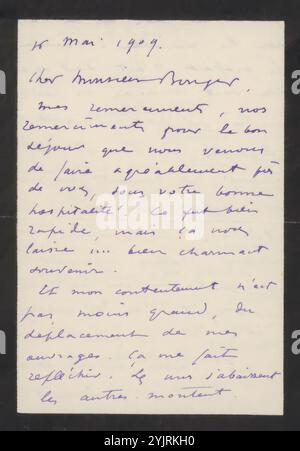 Mai 1909.
Cher Monsieur Bonger,
Mes remerciments, nos
remerciments pour le bon
séjour que nous venons
de faire agréablement près
de vous, sous votre bonne
hospitalité. Ce fut bien
rapide, mais ça nous
laisse un bien charmant
souvenir.
Et mon contentement n'est
pas moins grand, du
déplacement de mes
ouvrages. Ça me fait
réfléchir. Les uns s'abaissent
les autres montent.
alamy
Image ID: 2YJRKH0
www.alamy.com